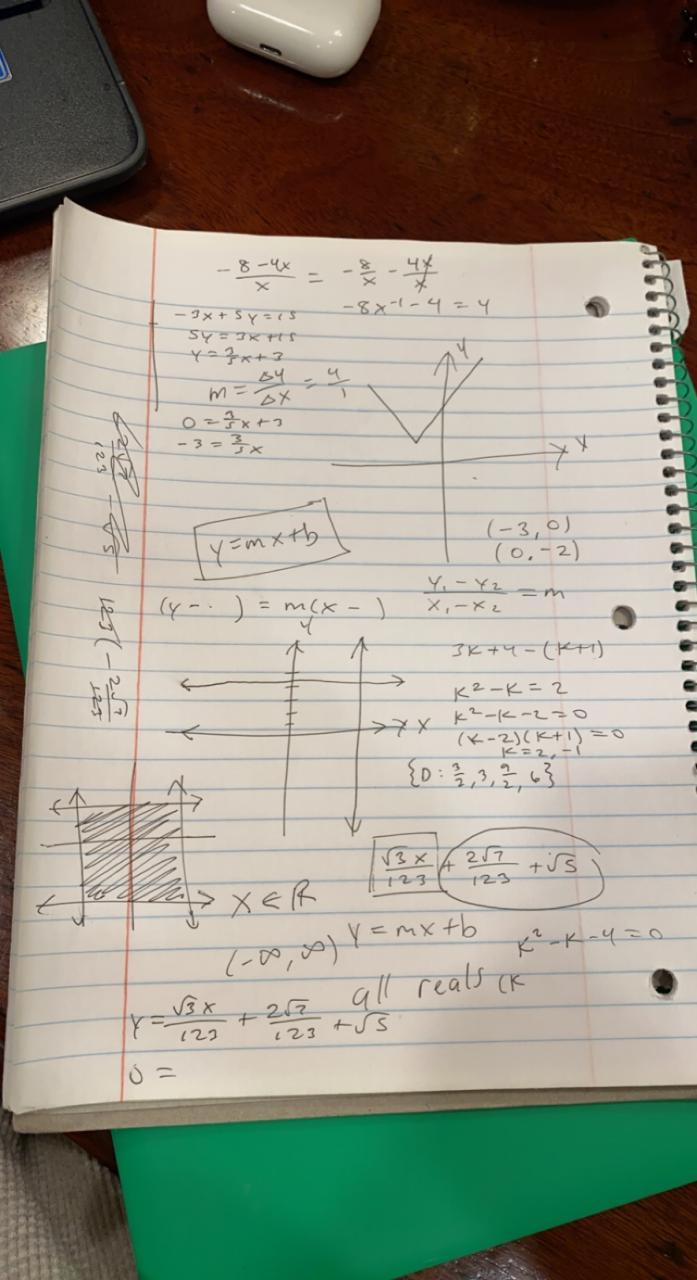 -8-4x/x = -8/x - 4x/x
-8x⁻¹ - 4 = 4
-3x + 5y = 15
5y = 3x + 15
y = 3/5x + 3
m = Δy/Δx = 4/1
0 = 3/5x + 3
-3 = 3/5x
y
x
y = mx + b
(-3, 0)
(0, -2)
(y - . ) = m(x - )
y₁ - y₂/x₁ - x₂ = m
y
x x
3k + 4 - (k+1)
k² - k = 2
k² - k - 2 = 0
(k-2)(k+1) = 0
k = 2, -1
{D: 3/2, 3, 9/2, 6}
√3x/123 + 2√7/123 + √5
x ∈ ℝ
(-∞, ∞)
y = mx + b
k² - k - 4 = 0
all reals (k
y = √3x/123 + 2√7/123 + √5
0 =